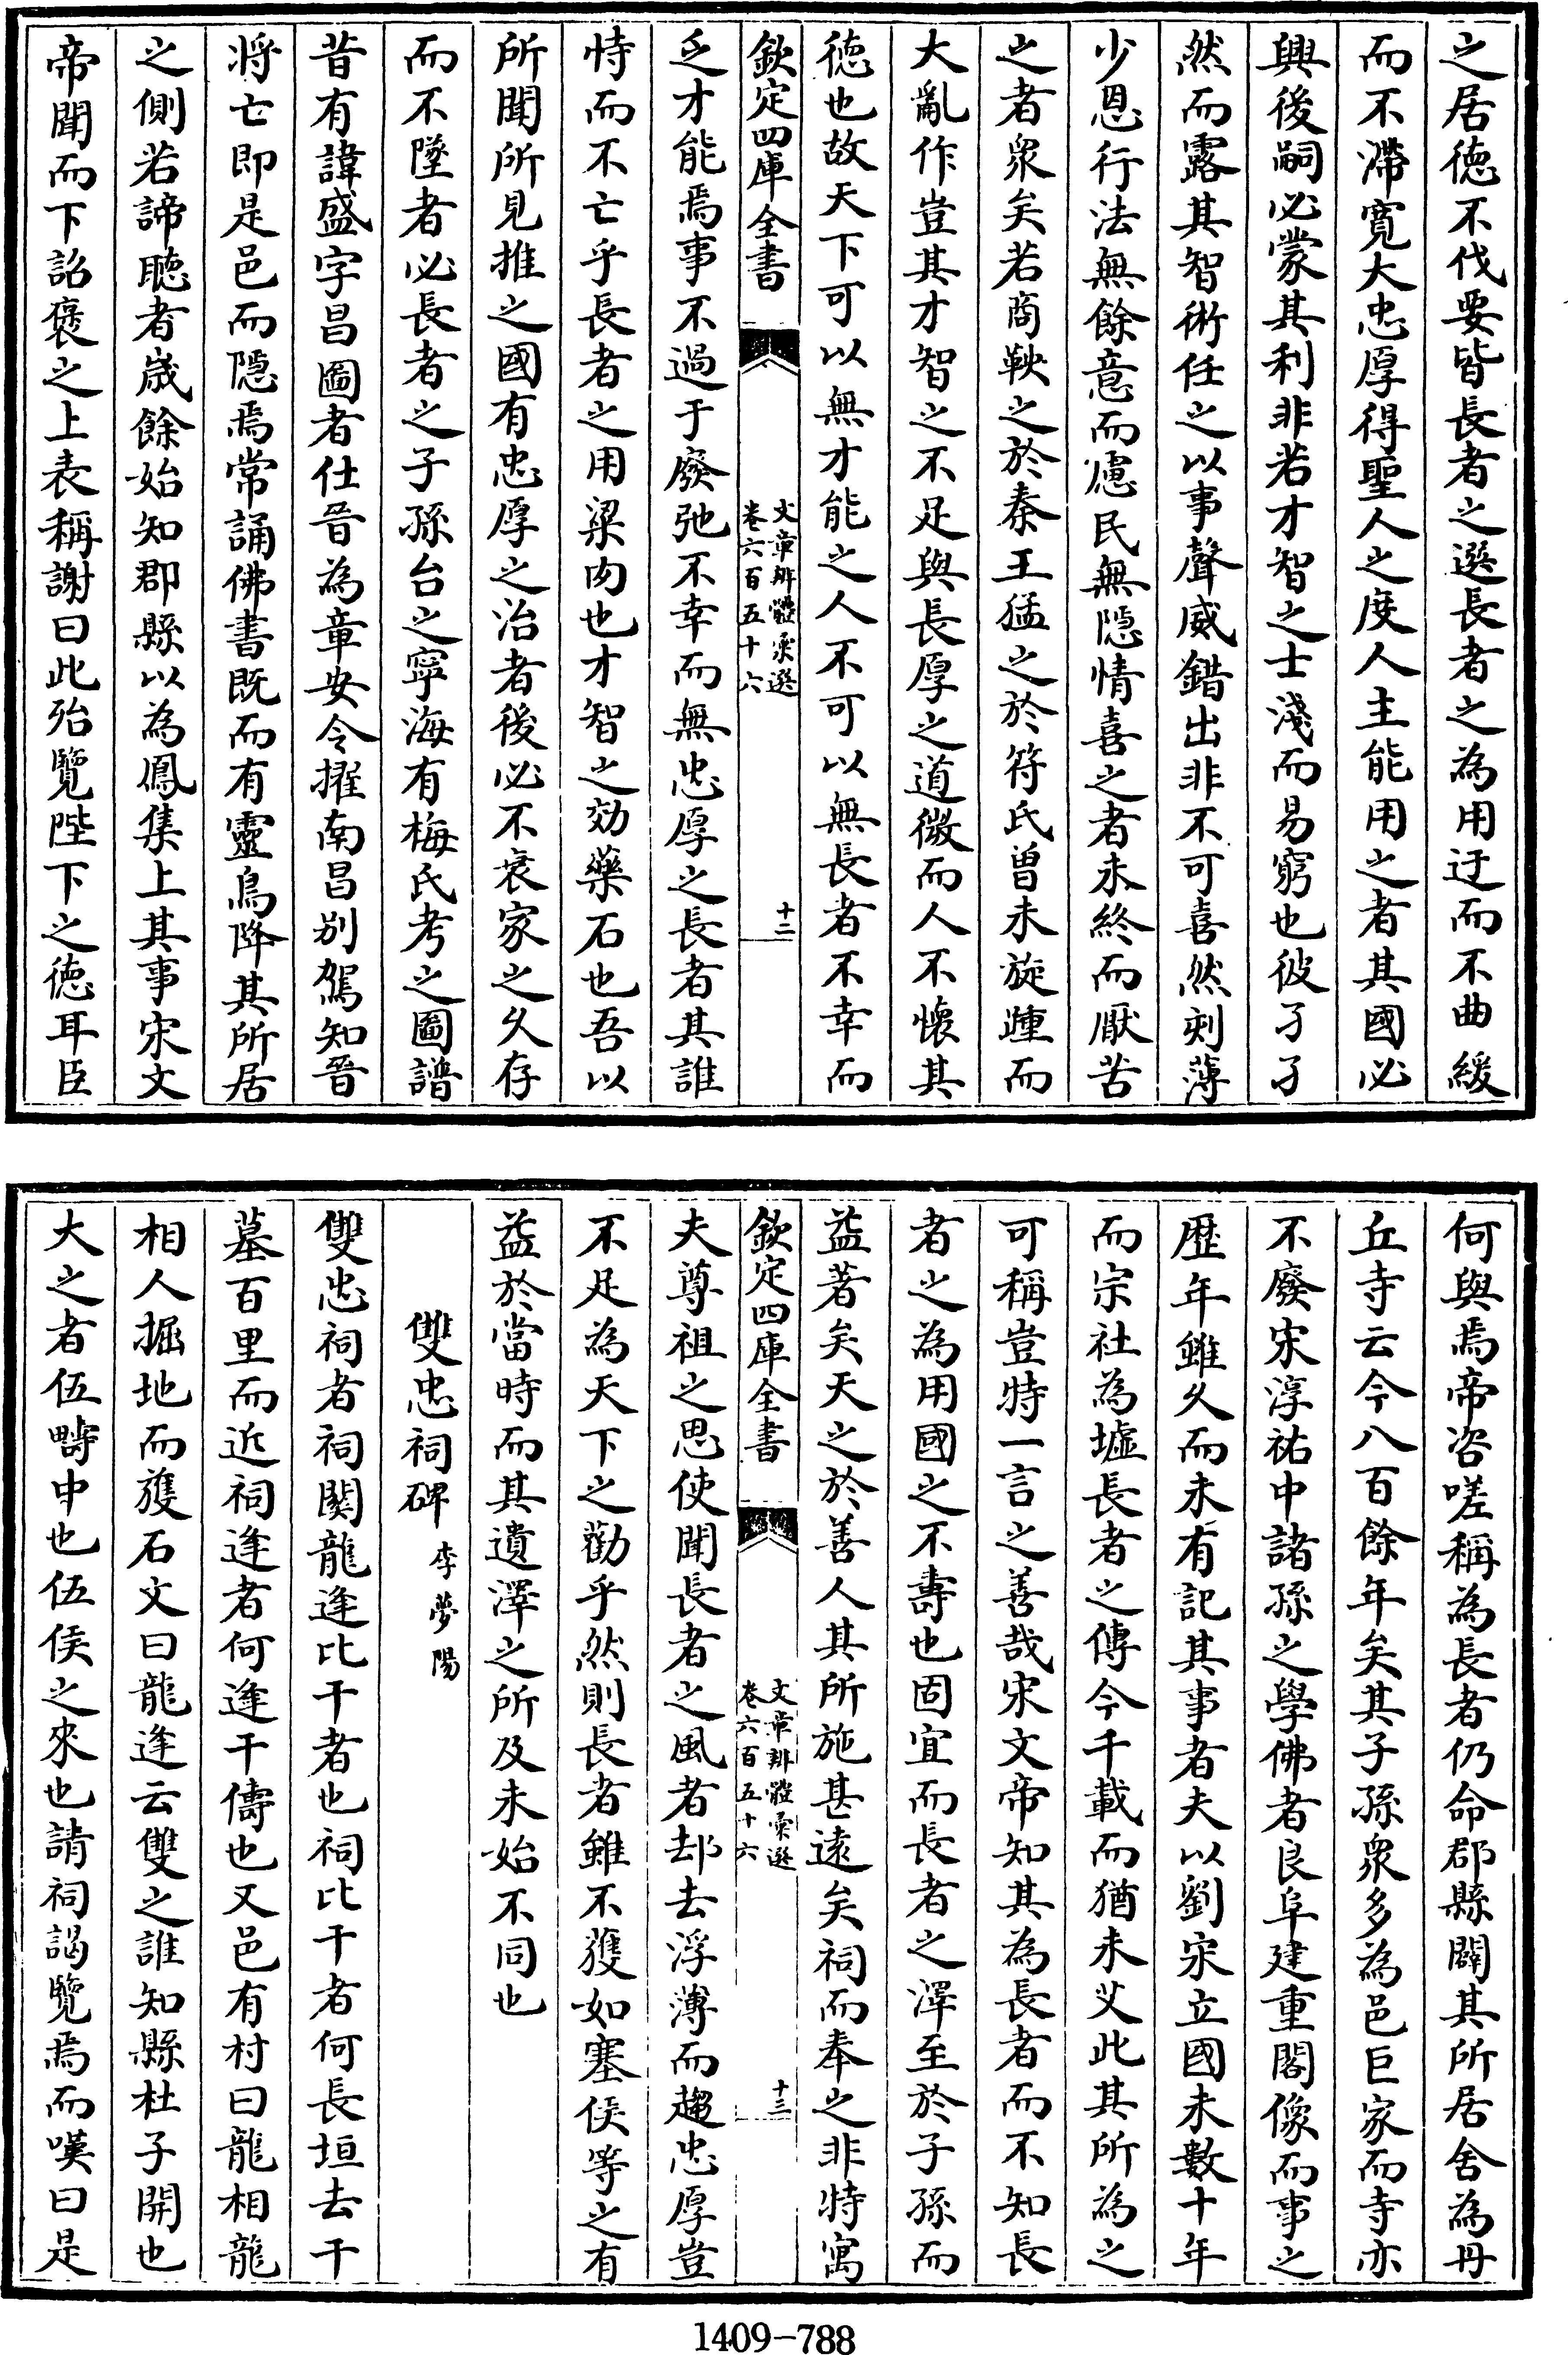 之居徳不伐要皆長者之選長者之為用迂而不曲緩
而不滯寛大忠厚得聖人之度人主能用之者其國必
興後嗣必蒙其利非若才智之士淺而易窮也彼孑孑
然而露其智術任之以事聲威錯出非不可喜然刻薄
少恩行法無餘意而慮民無隠情喜之者未終而厭苦
之者衆矣若商鞅之於秦王猛之於符氏曽未旋踵而
大亂作豈其才智之不足與長厚之道微而人不懐其
徳也故天下可以無才能之人不可以無長者不幸而
欽定四庫全書
文章辨體彚選
卷六百五十六
十二
乏才能焉事不過于廢弛不幸而無忠厚之長者其誰
恃而不亡乎長者之用粱肉也才智之効藥石也吾以
所聞所見推之國有忠厚之治者後必不衰家之久存
而不墜者必長者之子孫台之寧海有梅氏考之圖譜
昔有諱盛字昌圖者仕晉為章安令擢南昌别駕知晉
将亡即是邑而隠焉常誦佛書既而有靈鳥降其所居
之側若諦聽者嵗餘始知郡縣以為鳳集上其事宋文
帝聞而下詔褒之上表稱謝曰此殆覽陛下之徳耳臣
何與焉帝咨嗟稱為長者仍命郡縣闢其所居舍為丹
丘寺云今八百餘年矣其子孫衆多為邑巨家而寺亦
不廢宋淳祐中諸孫之學佛者良阜建重閣像而事之
歴年雖久而未有記其事者夫以劉宋立國未數十年
而宗社為墟長者之傳今千載而猶未艾此其所為之
可稱豈特一言之善哉宋文帝知其為長者而不知長
者之為用國之不壽也固宜而長者之澤至於子孫而
益著矣天之於善人其所施甚逺矣祠而奉之非特寓
欽定四庫全書
文章辨體彚選
卷六百五十六
十三
夫尊祖之思使聞長者之風者却去浮薄而趨忠厚豈
不足為天下之勸乎然則長者雖不獲如塞侯等之有
益於當時而其遺澤之所及未始不同也
雙忠祠碑 李夢陽
雙忠祠者祠闗龍逢比干者也祠比干者何長垣去干
墓百里而近祠逢者何逢干儔也又邑有村曰龍相龍
相人掘地而獲石文曰龍逢云雙之誰知縣杜子開也
大之者伍疇中也伍侯之來也請祠謁覽焉而嘆曰是
1409-788